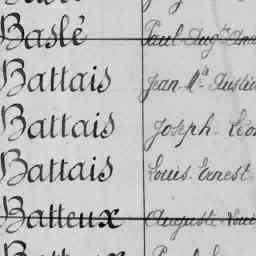 Baslé Paul Aug^te
Battais Jean M^a
Battais Joseph Léon
Battais Louis Ernest
Batteux Auguste Louis